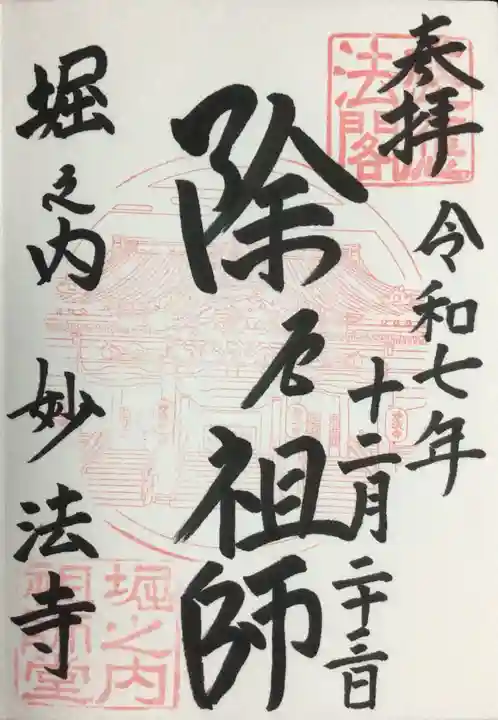 奉拝
令和七年
十二月二十三日
除厄祖師
堀之内 妙法寺
堀之内
祖師堂